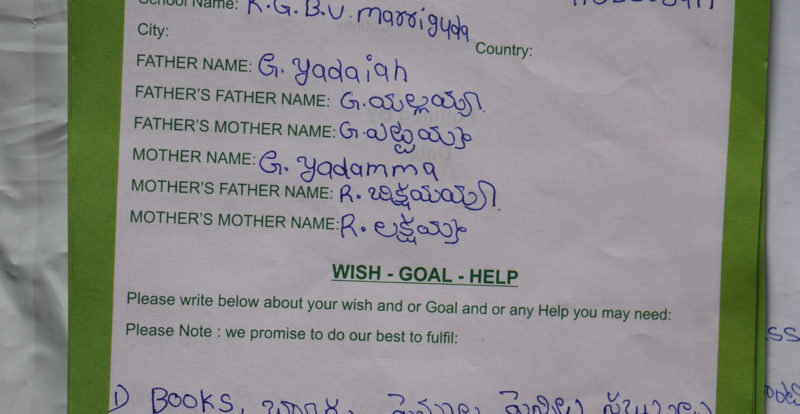 School Name: K.G.B.V. marriguda
City:
Country:
FATHER NAME: G. Yadaiah
FATHER'S FATHER NAME: G. యల్లయ్య.
FATHER'S MOTHER NAME: G.
MOTHER NAME: G. Yadamma
MOTHER'S FATHER NAME: R. బిక్షమయ్య.
MOTHER'S MOTHER NAME: R. లక్ష్మమ్మ
WISH - GOAL - HELP
Please write below about your wish and or Goal and or any Help you may need:
Please Note : we promise to do our best to fulfil:
1) BOOKS,